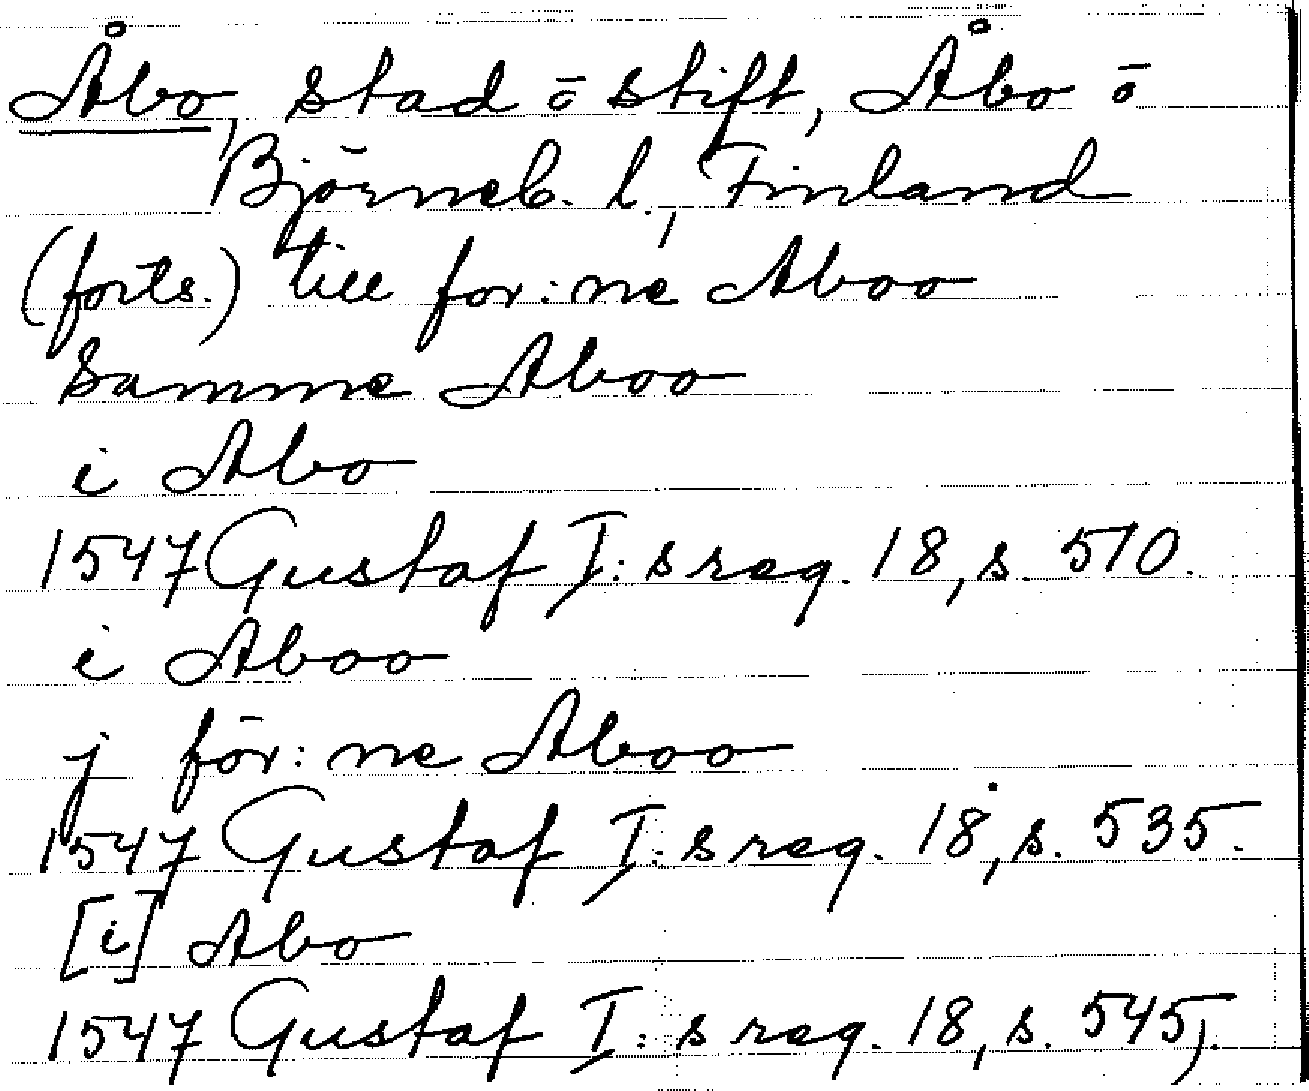 Åbo, stad ō stift, Åbo ō
Björneb. l., Finland
(forts.) till for:ne Aboo
Samme Aboo
i Abo
1547 Gustaf I:s reg. 18, s. 510.
i Aboo
j för:ne Aboo
1547 Gustaf I:s reg. 18, s. 535.
[i] Abo
1547 Gustaf I:s reg. 18, s. 545).